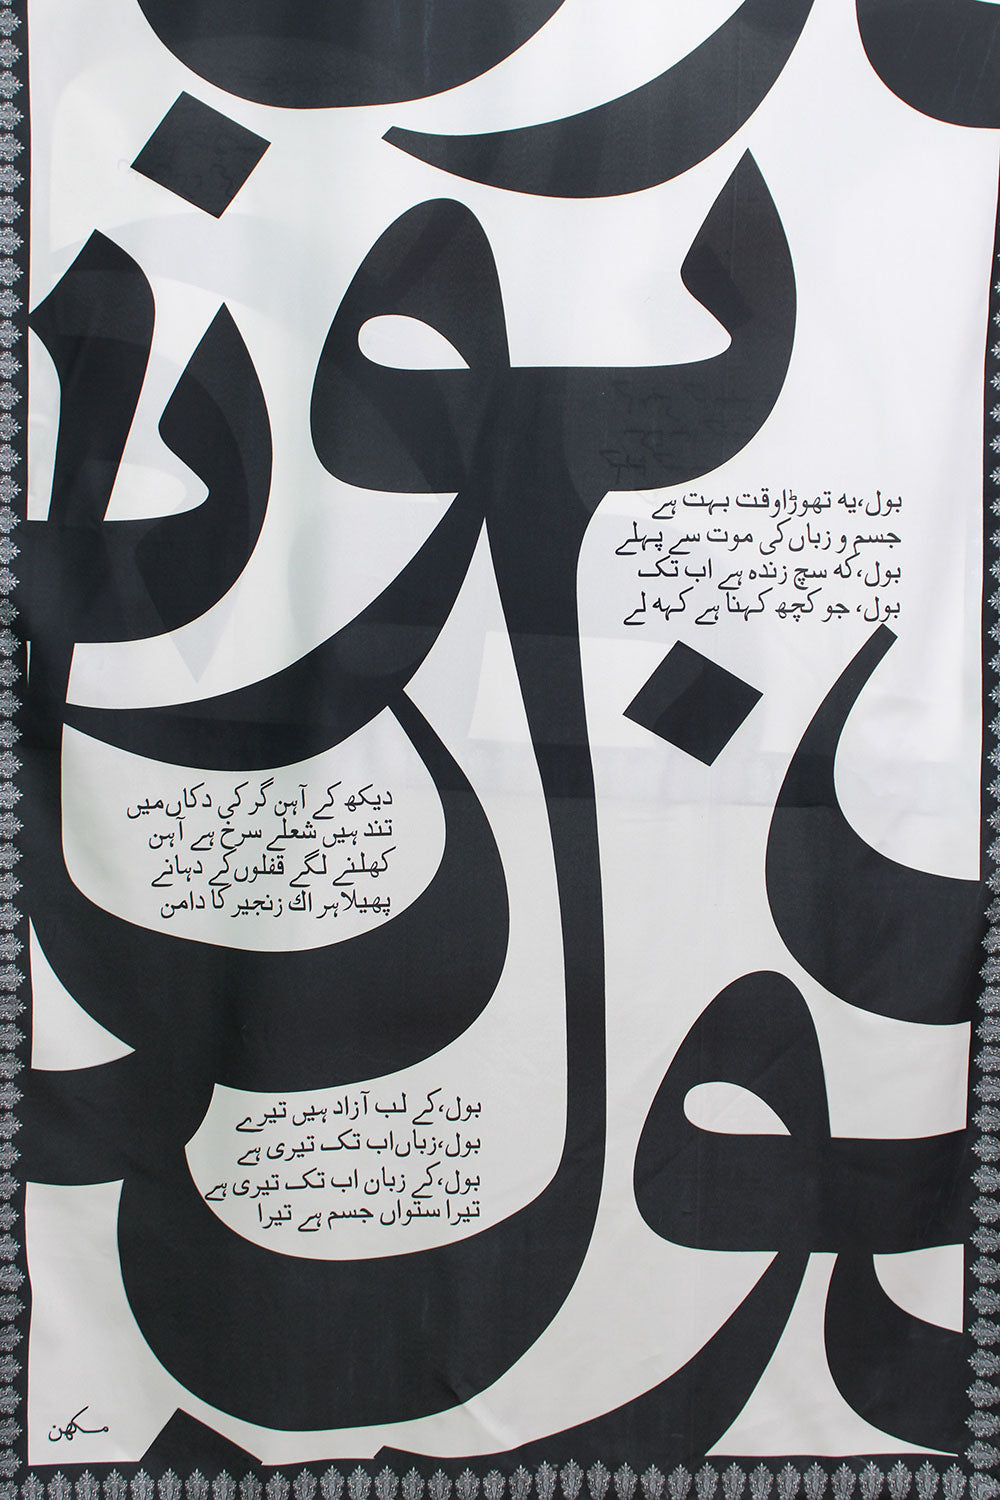 بول
بول،یہ تھوڑاوقت بہت ہے
جسم و زباں کی موت سے پہلے
بول،کہ سچ زندہ ہے اب تک
بول، جو کچھ کہنا ہے کہہ لے
دیکھ کے آہن گر کی دکاں میں
تند ہیں شعلے سرخ ہے آہن
کھلنے لگے قفلوں کے دہانے
پھیلا ہر اك زنجیر کا دامن
بول،کے لب آزاد ہیں تیرے
بول،زباں اب تک تیری ہے
بول،کے زبان اب تک تیری ہے
تیرا ستواں جسم ہے تیرا
مکھن